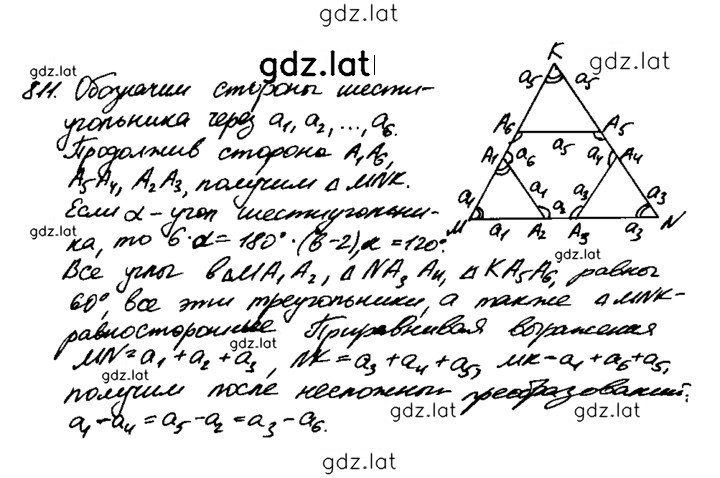 gdz.lat
gdz.lat
gdz.lat
811. Обозначим стороны шести-
угольника через a₁, a₂, ..., a₆.
Продолжив стороны A₁A₆,
A₅A₄, A₂A₃, получим △ MNK.
Если α - угол шестиугольни-
gdz.lat
ка, то 6·α = 180°·(6-2), α = 120°.
Все углы в △MA₁A₂, △NA₃A₄, △KA₅A₆, равны
60°, все эти треугольники, а также △MNK-
равносторонние Приравнивая выражения
gdz.lat
MN = a₁ + a₂ + a₃, NK = a₃ + a₄ + a₅, MK = a₁ + a₆ + a₅,
gdz.lat
получим после несложных преобразований:
a₁ - a₄ = a₅ - a₂ = a₃ - a₆.
gdz.lat gdz.lat
gdz.lat
K
gdz.lat
a₅ a₅
A₆ A₅
a₅
A₁ a₆ a₄ A₄
a₁ a₁ a₃ a₃
M a₁ A₂ a₂ A₃ a₃ N
gdz.lat